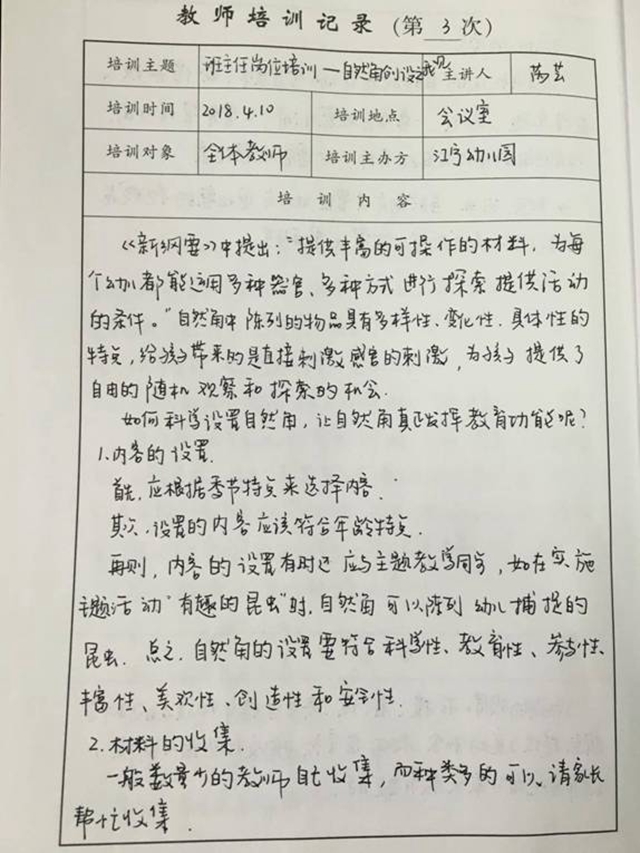 教师培训记录(第 3 次)
培训主题 班主任岗位培训—自然角创设之我见 主讲人
培训时间 2018.4.10 培训地点 会议室
培训对象 全体教师 培训主办方 江宁幼儿园
培训内容
《新纲要》中提出："提供丰富的可操作的材料,为每
个幼儿都能运用多种器官、多种方式进行探索提供活动
的条件。"自然角中陈列的物品具有多样性、变化性、具体性的
特点,给孩子带来的是直接刺激感官的刺激,为孩子提供了
自由的随机观察和探索的机会.
如何科学设置自然角,让自然角真正发挥教育功能呢?
1.内容的设置.
首先,应根据季节特点来选择内容.
其次,设置的内容应该符合年龄特点.
再则,内容的设置有时还应与主题教学同步,如在实施
主题活动"有趣的昆虫"时,自然角可以陈列幼儿捕捉的
昆虫. 总之.自然角的设置要符合科学性、教育性、参与性、
丰富性、美观性、创造性和安全性.
2.材料的收集.
一般数量少的教师自己收集,而种类多的可以请家长
帮忙收集.